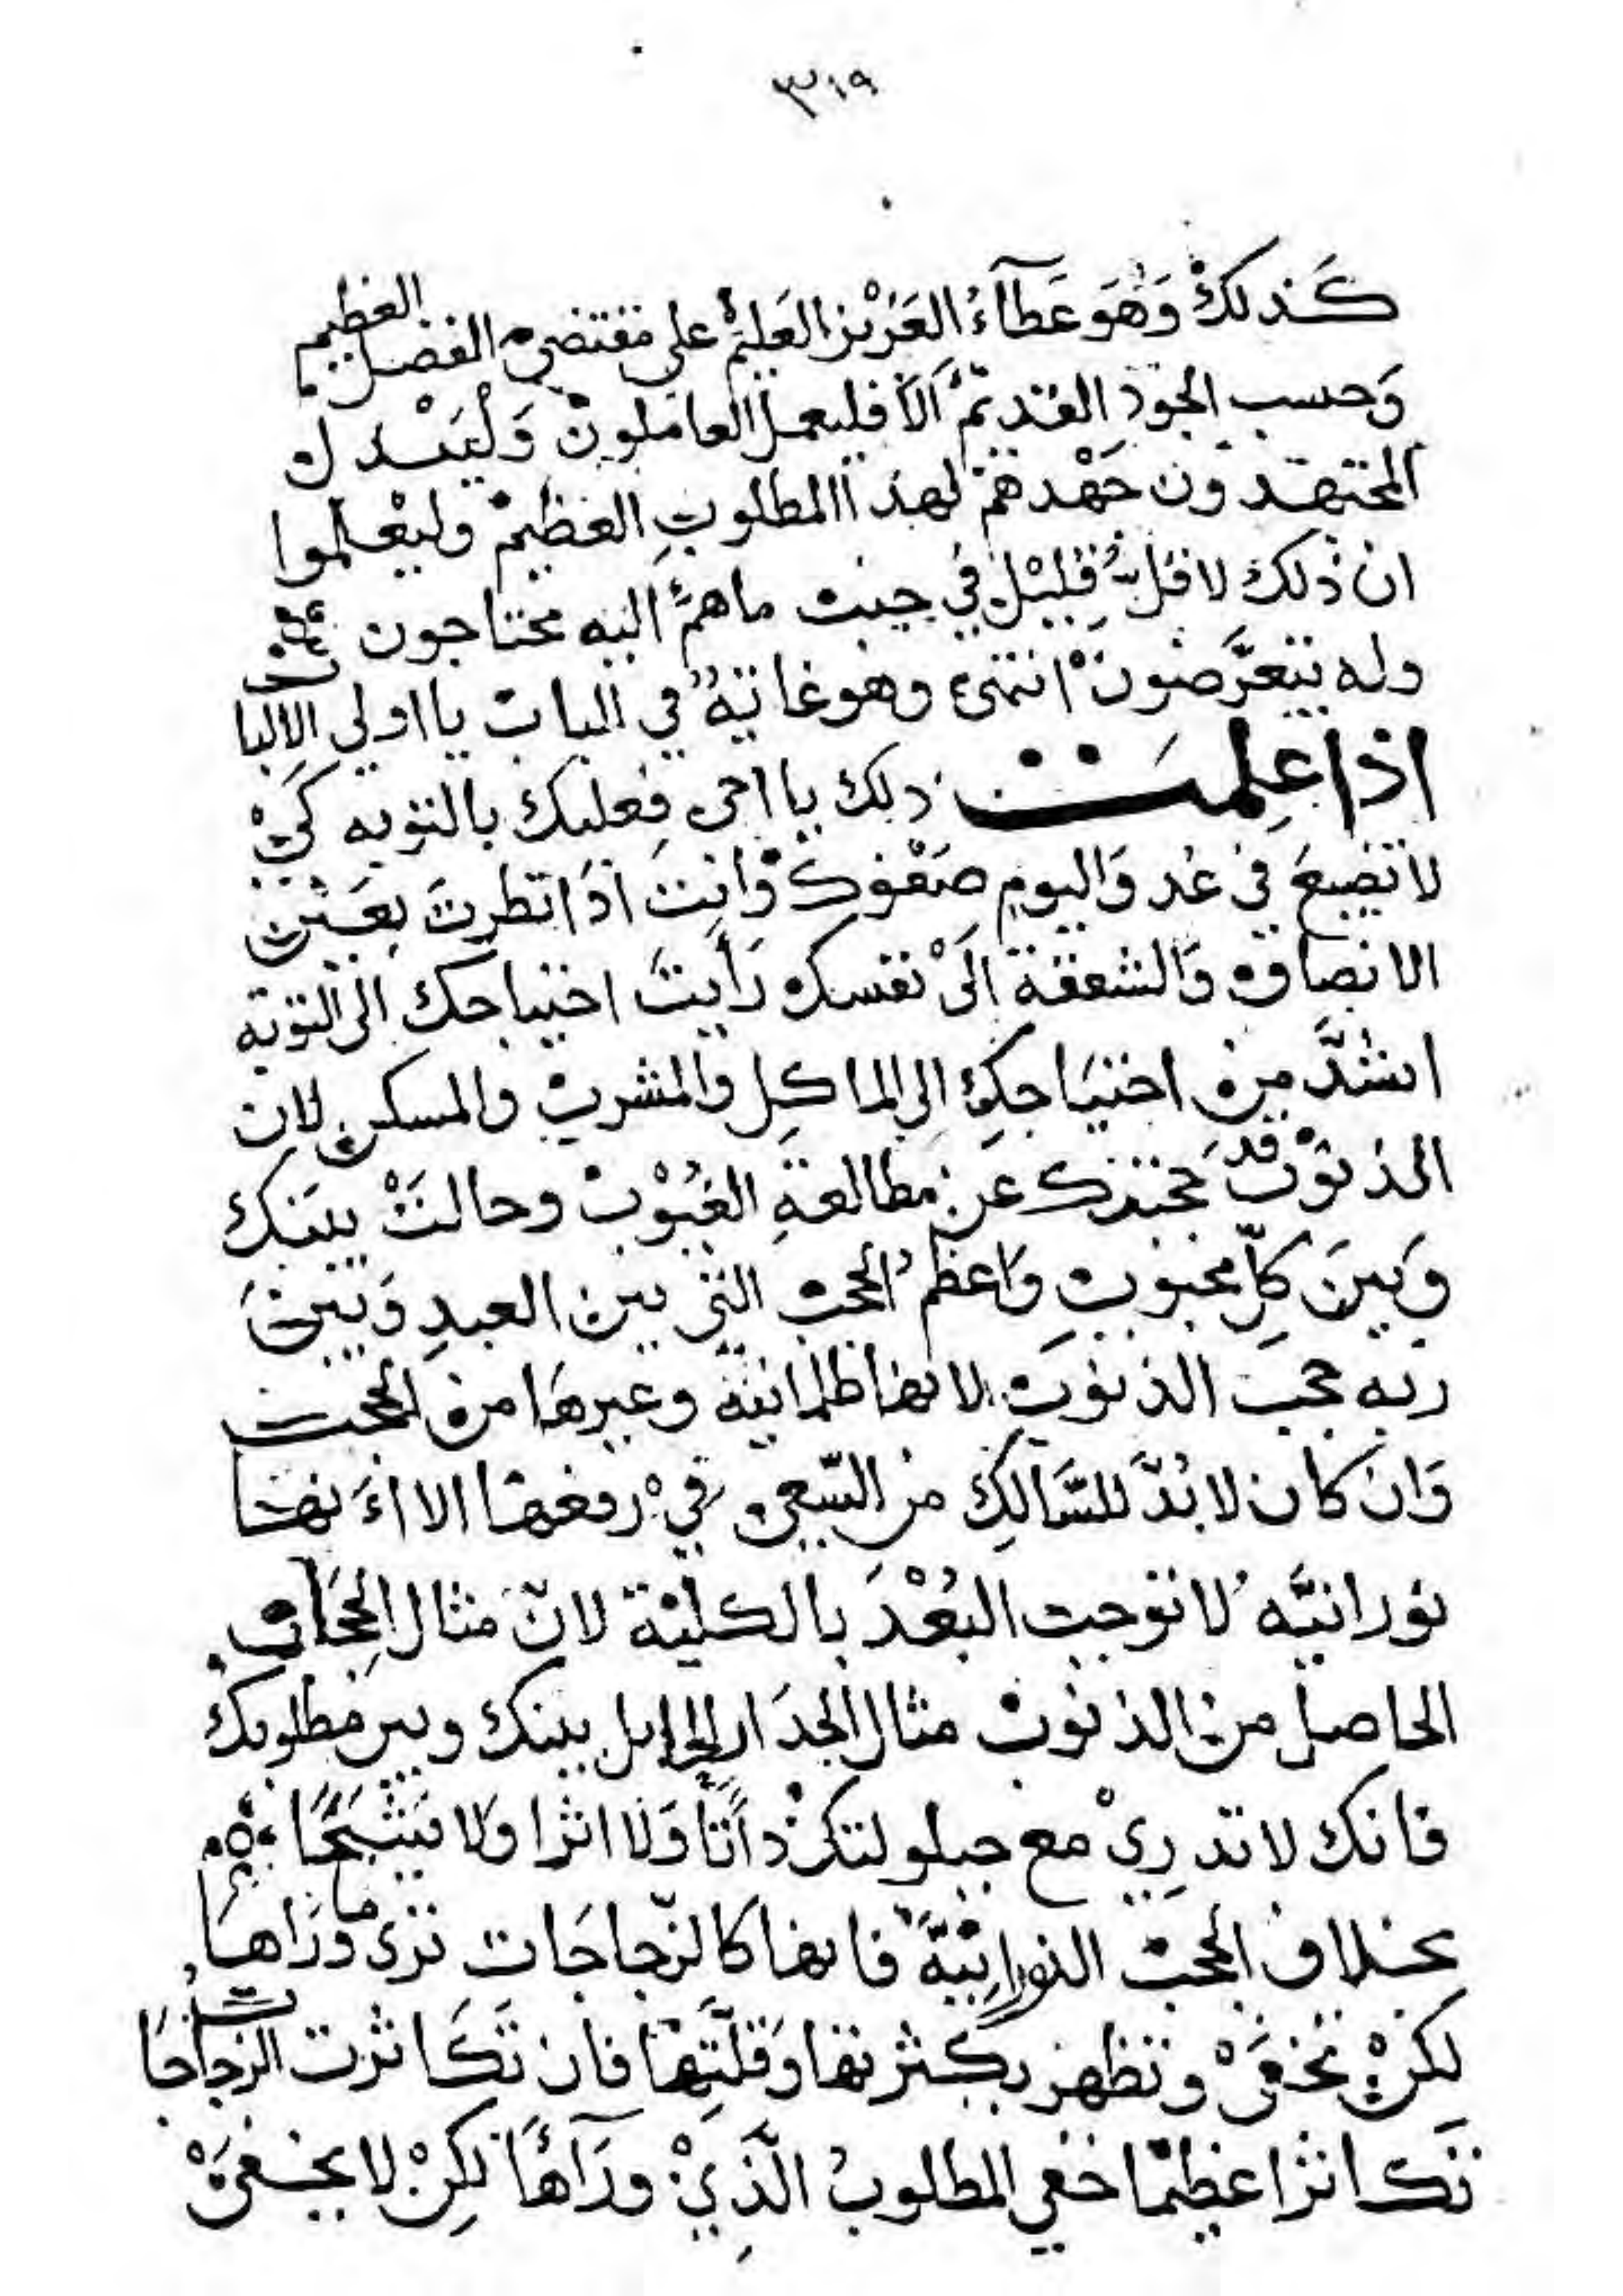 ٣١٩
كذلك وَهُوَ عَطآءُ العَزيْز العَلِيْم على مقتضى الفضل العظيم
وَحسب الجودِ القديم اَلَا فليعمل العاملون وَلْيَبْذل
المجتهدون جَهْدهم لهذا المطلوبِ العظيم وليعلموا
ان ذلك لاقلُّ قليْل في جنب ما همُ اليه محتاجون
وله يتعرَّضونْ انتهى وهو غايةٌ في الباب يا اولي الالباب
اذا عِلمتَ ذلك يا اخي فعليك بالتوبه كَيْ
لا تضيعَ في غد وَاليوم صَفْوك وَانت اذا نظرتَ بعَيْن
الانصاف وَالشفقة اِلَىْ نفسك رَأيتَ احتياجك الى التوبة
اشدَّ من احتيَاجكِ الى الماكِل والمشرب والمسكن لان
الذنوْب قد حَجَبتك عن مطالعةِ الغُيُوْب وحالتْ بينك
وَبينَ كلِّ محبوبٍ وَاعظمُ الحجب التي بين العبدِ وَبينَ
ربه حجب الذنوبِ لانها ظلمانية وغيرهَا من الحجب
وَان كان لابُدَّ للسَّالكِ من السّعي فيْ رفعها الا اَنها
نورانيَّه لا توجب البُعْدَ بالكليْة لانّ مثال الحِجَاب
الحاصل من الذنوب مثال الجدَار الحايل بينك وبين مطلوبك
فانك لا تدرِيْ مع حيلولته ذاتًا وَلا اثرا وَلا شَبَحًا
بخلاف الحجب النورانِيَّة فانها كالزّجاجَات ترى ما وَرَاهَا
لكنْ تخفىْ وتظهر بكثرتها وَقلَّتِهَا فان تَكَاثرت الزجاجات
تكاثرا عظيمًا خفي المطلوبُ الَّذِيْ ورَآهَا لكِنْ لا يخفىْ